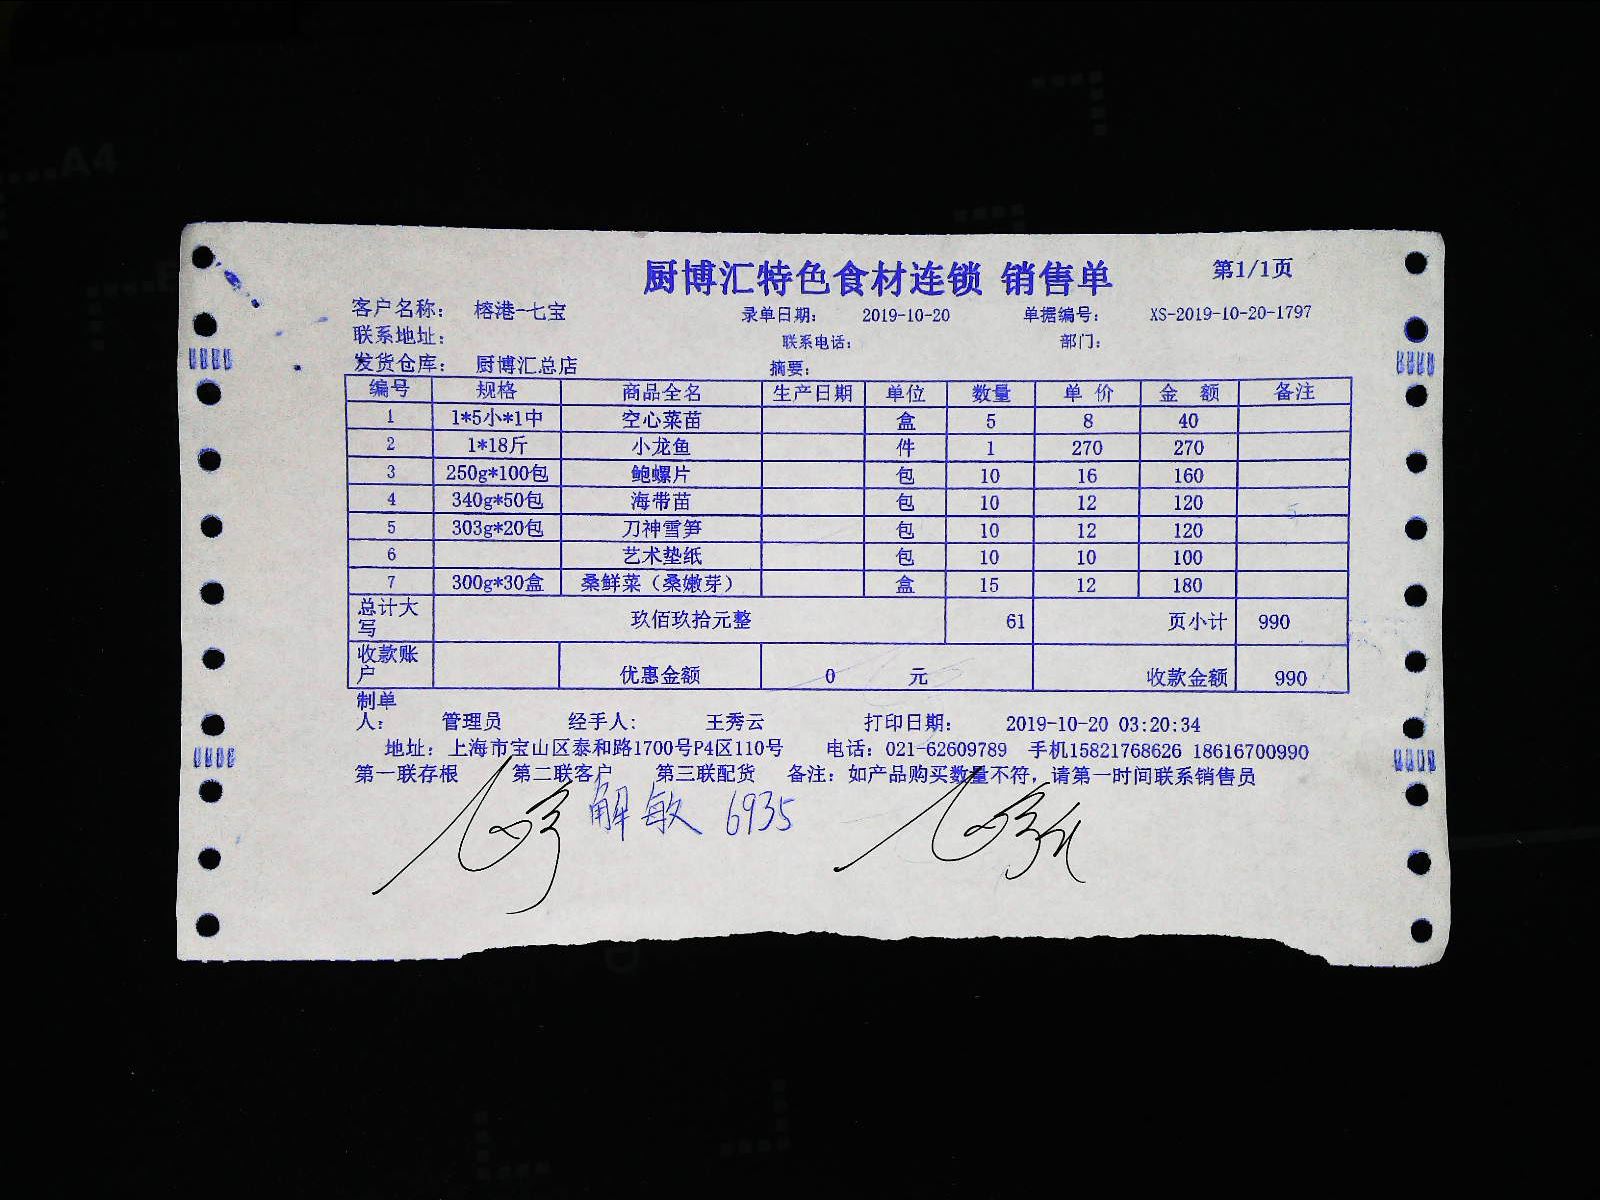 厨博汇特色食材连锁 销售单 第1/1页
客户名称： 榕港-七宝 录单日期： 2019-10-20 单据编号： XS-2019-10-20-1797
联系地址： 联系电话： 部门：
发货仓库： 厨博汇总店 摘要：
编号 规格 商品全名 生产日期 单位 数量 单 价 金 额 备注
1 1*5小*1中 空心菜苗 盒 5 8 40
2 1*18斤 小龙鱼 件 1 270 270
3 250g*100包 鲍螺片 包 10 16 160
4 340g*50包 海带苗 包 10 12 120
5 303g*20包 刀神雪笋 包 10 12 120
6 艺术垫纸 包 10 10 100
7 300g*30盒 桑鲜菜（桑嫩芽） 盒 15 12 180
总计大写 玖佰玖拾元整 61 页小计 990
收款账户 优惠金额 0 元 收款金额 990
制单人： 管理员 经手人： 王秀云 打印日期： 2019-10-20 03:20:34
地址：上海市宝山区泰和路1700号P4区110号 电话：021-62609789 手机15821768626 18616700990
第一联存根 第二联客户 第三联配货 备注：如产品购买数量不符，请第一时间联系销售员
解敏 6935
A4